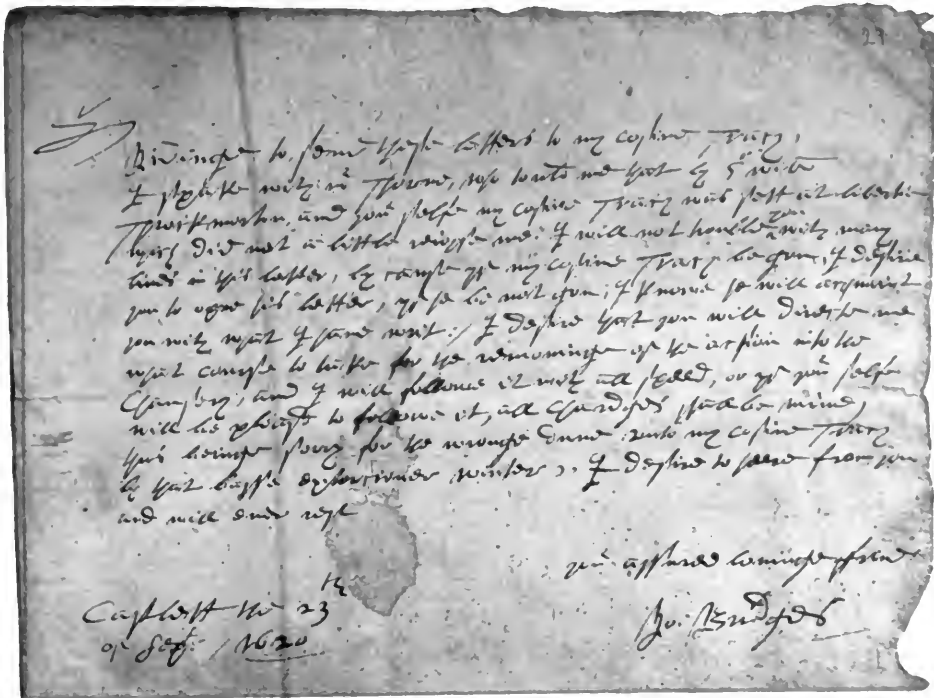 27
Sr
Bringinge to send thesse letters to my cosine Tracy,
I spake with mr Thorne, who tould me that by Sr Wilł
Throkmorton, and your selfe my cosine Tracy was sett at libertie
which did not a little reioyse me: I will not trouble you with many
lines in this letter, by cause yf my cosine Tracy be gon, I desire
you to open his letter, yf he be not gon, I knowe he will acquaint
you with what I have writ:/ I desire that you will directe me
what course to take for the removinge of the action into the
Chancery, and I will followe it with all speed, or yf your selfe
will be pleased to followe it, all chardges shall be mine,
thus beinge sorry for the wronge donne unto my cosine Tracy
by that basse extortioner winter, I desire to heare from you
and will ever rest
your assured lovinge frend
Jo: Bridges
Castlett the 23th
of Sept: / 1620